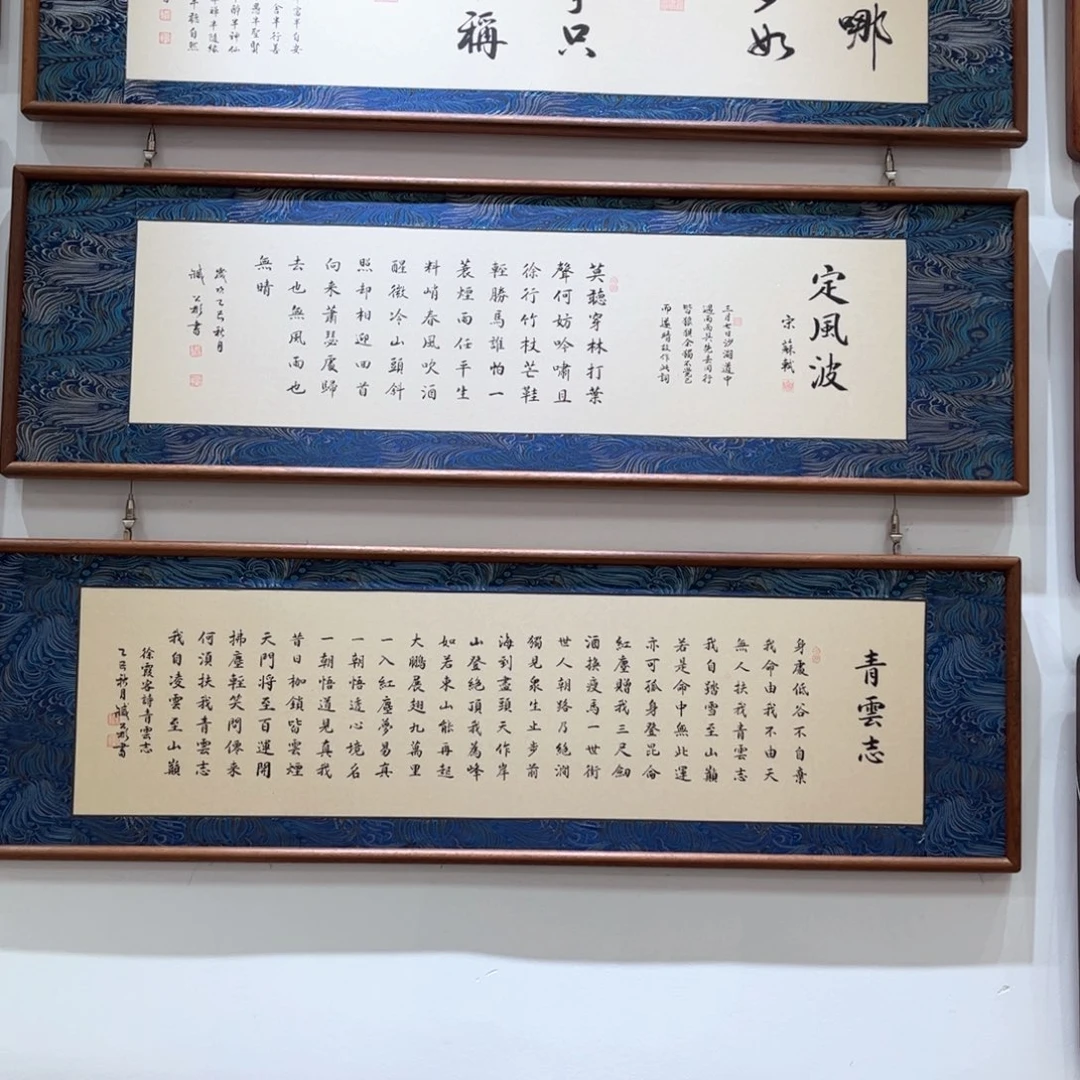 哪
如
只
稱
富半自安
舍半行善
愚半聖賢
醉半神仙
半隨緣
自然
定風波
宋 蘇軾
三月七日沙湖道中
遇雨雨具先去同行
皆狼狽余獨不覺已
而遂晴故作此詞
莫聽穿林打葉
聲何妨吟嘯且
徐行竹杖芒鞋
輕勝馬誰怕一
蓑煙雨任平生
料峭春風吹酒
醒微冷山頭斜
照却相迎回首
向來蕭瑟處歸
去也無風雨也
無晴
歲次乙巳秋月
書
青雲志
身處低谷不自棄
我命由我不由天
無人扶我青雲志
我自踏雪至山巔
若是命中無此運
亦可孤身登昆侖
紅塵贈我三尺劍
酒換瘦馬一世街
世人朝路乃絕澗
獨見眾生止步前
海到盡頭天作岸
山登絕頂我為峰
如若東山能再起
大鵬展翅九萬里
一入紅塵夢易真
一朝悟透心境名
一朝悟道見真我
昔日枷鎖皆雲煙
天門將至百運開
拂塵輕笑問傳來
何須扶我青雲志
我自凌雲至山巔
徐霞客詩青雲志
乙巳秋月 書